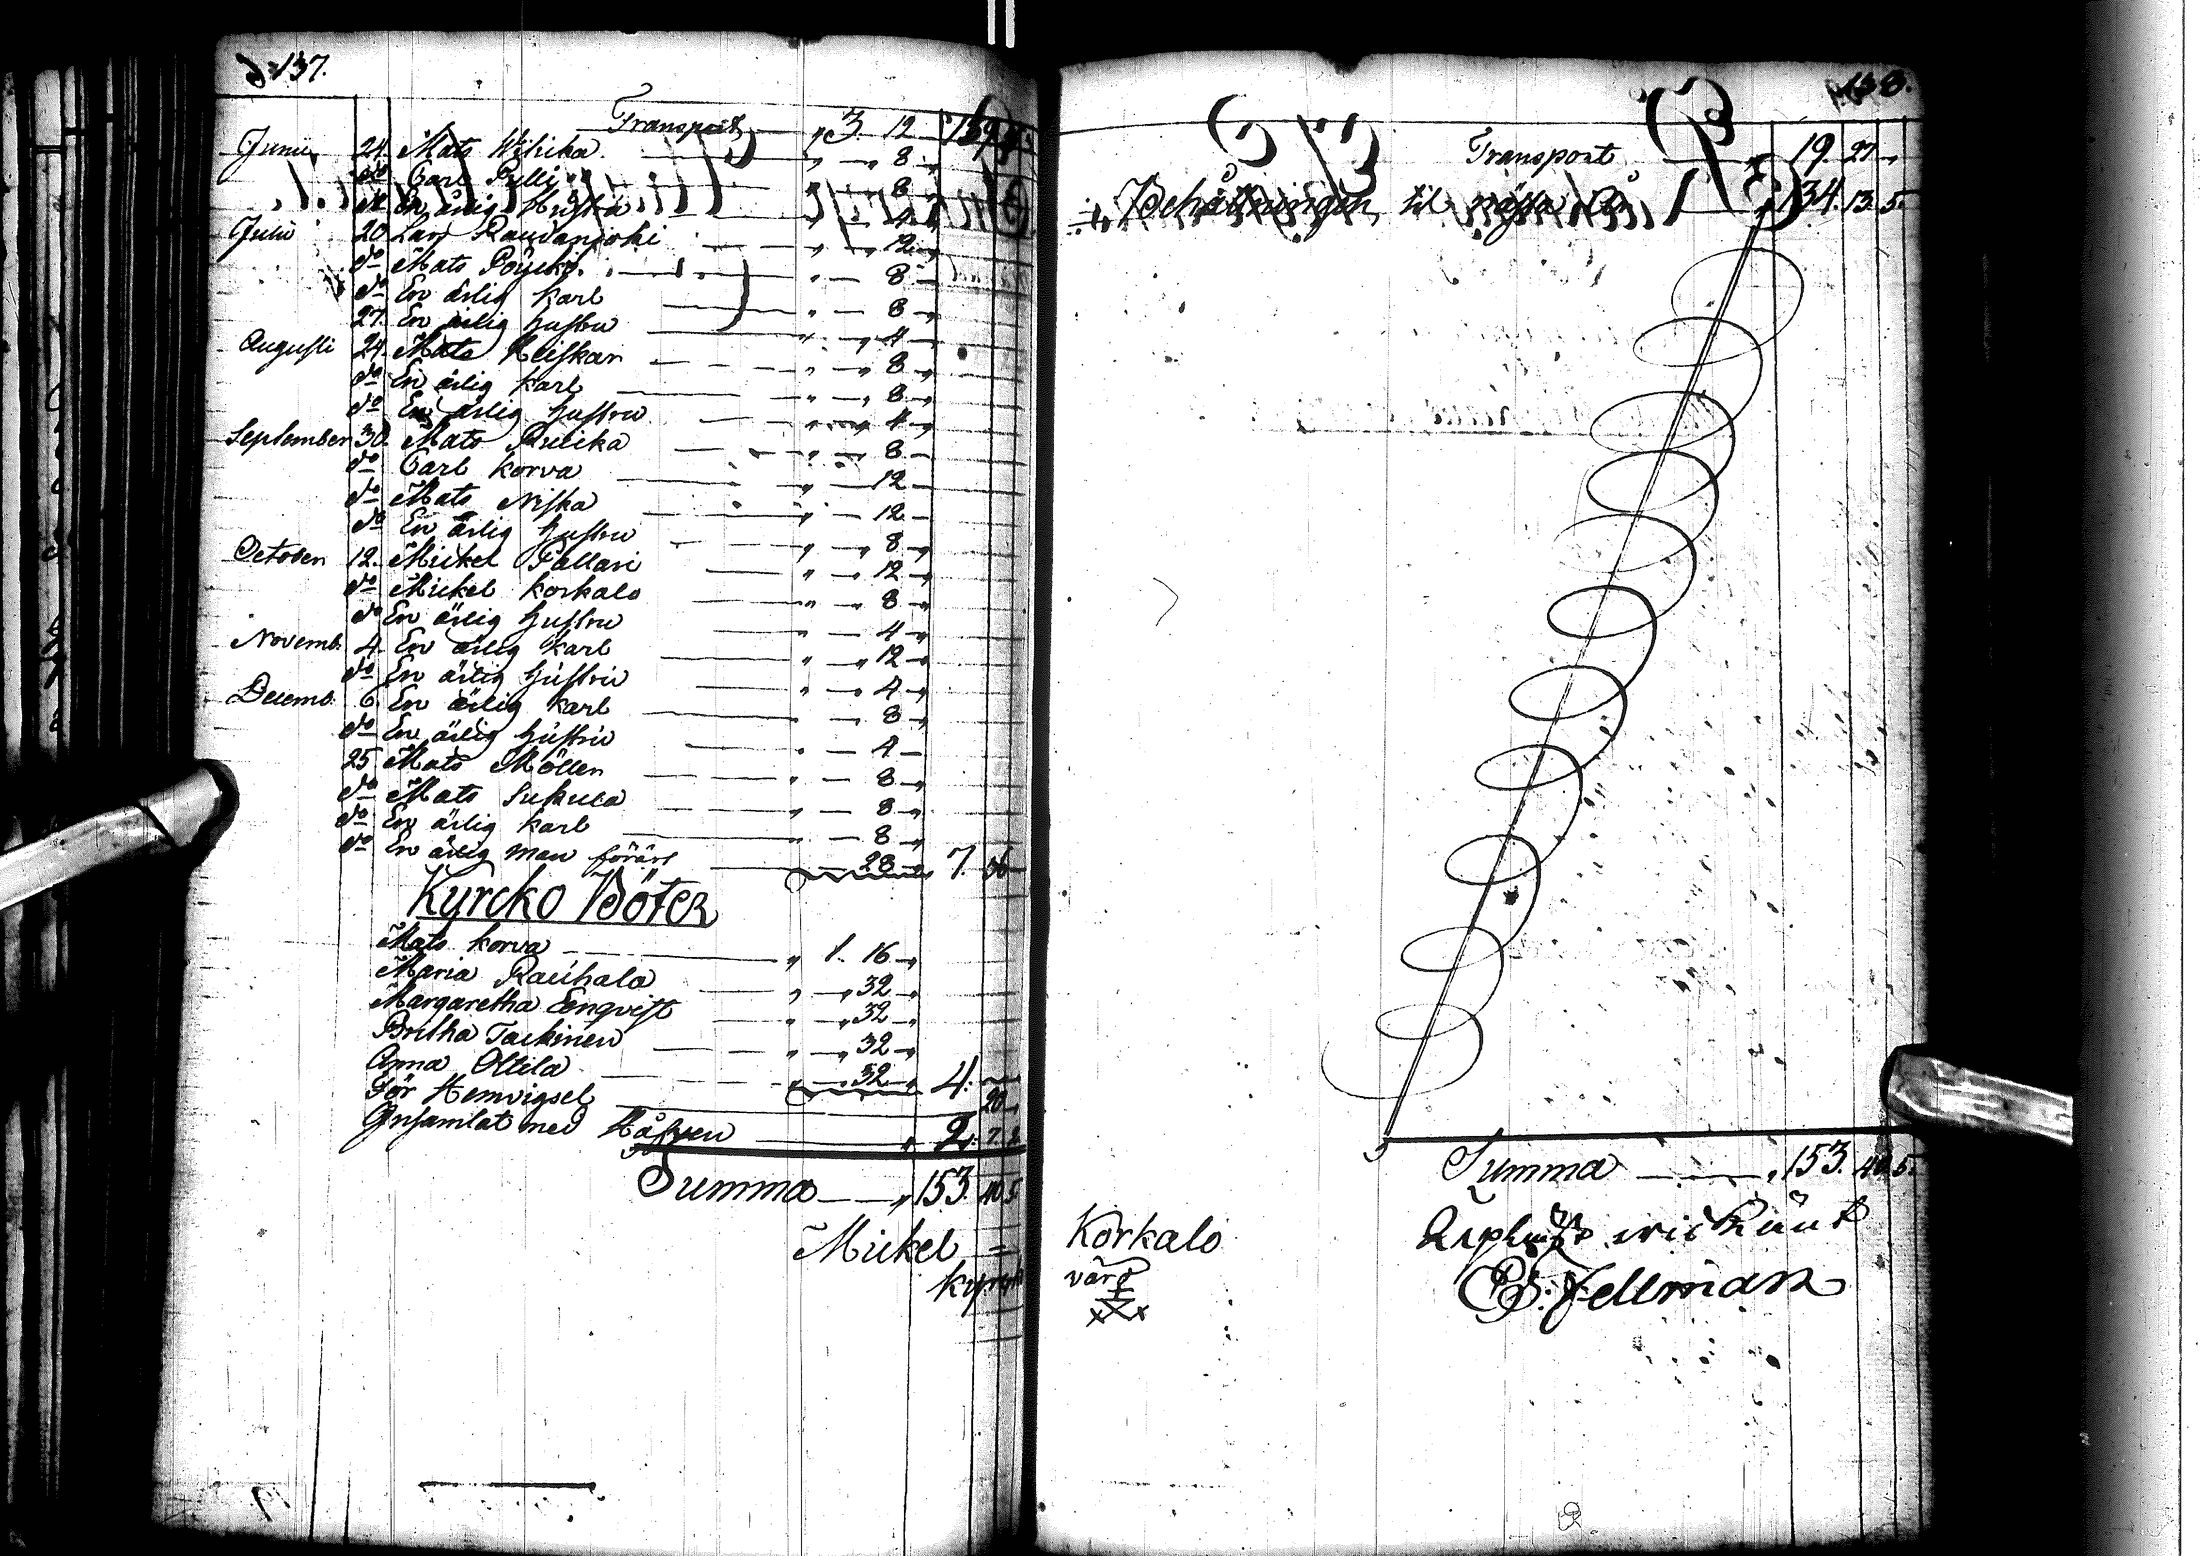 137.
Transport „ 3. 12 139.
Junii 24. Mats Wihika „ — 8 „
do Carl Pulli „ — 8 „
do En ärlig Hustru „ — 4 „
Julii 20 Lars Raudanjoki „ — 12 „
do Mats Pöyckö „ — 8 —
do En ärlig karl „ — 8 „
27. En ärlig hustru „ — 4 —
Augusti 24. Mats Heiskari „ — 8 „
do En ärlig karl „ — 8 „
do En ärlig hustru „ — 4 —
September 30. Mats Rulika „ — 8 —
do Carl korva „ — 12 —
do Mats Niska „ — 12 —
do En ärlig hustru „ — 8 „
October 12. Mickel Pallari „ — 12 „
do Mickel korkalo „ — 8 „
do En ärlig hustru „ — 4 „
Novemb. 4. En ärlig karl „ — 12 „
do En ärlig hustru „ — 4 „
Decemb. 6 En ärlig karl „ — 8 „
do En ärlig hustru „ — 4 —
25 Mats Möller „ — 8 „
do Mats Sukula „ — 8 „
do En ärlig karl „ — 8 „
do En ärlig man förärt — 28 „ 7.
Kyrcko Böter
Mats korva „ 1. 16 „
Maria Rauhala „ — 32 „
Margaretha Enqvist „ — 32 „
Britha Tackinen „ — 32 „
Anna Ollila „ — 32 „ 4. —
För Hemvigsel 20 „
Insamlat med Håfven „ 2. 7
Summa — „ 153. 40 5.
Mickel =
138.
Transport „ 19. 27 „
Behållningen til nästa År „ 134. 13. 5.
Summa — „ 153. 40. 5.
Korkalo
värd
E. Fellman